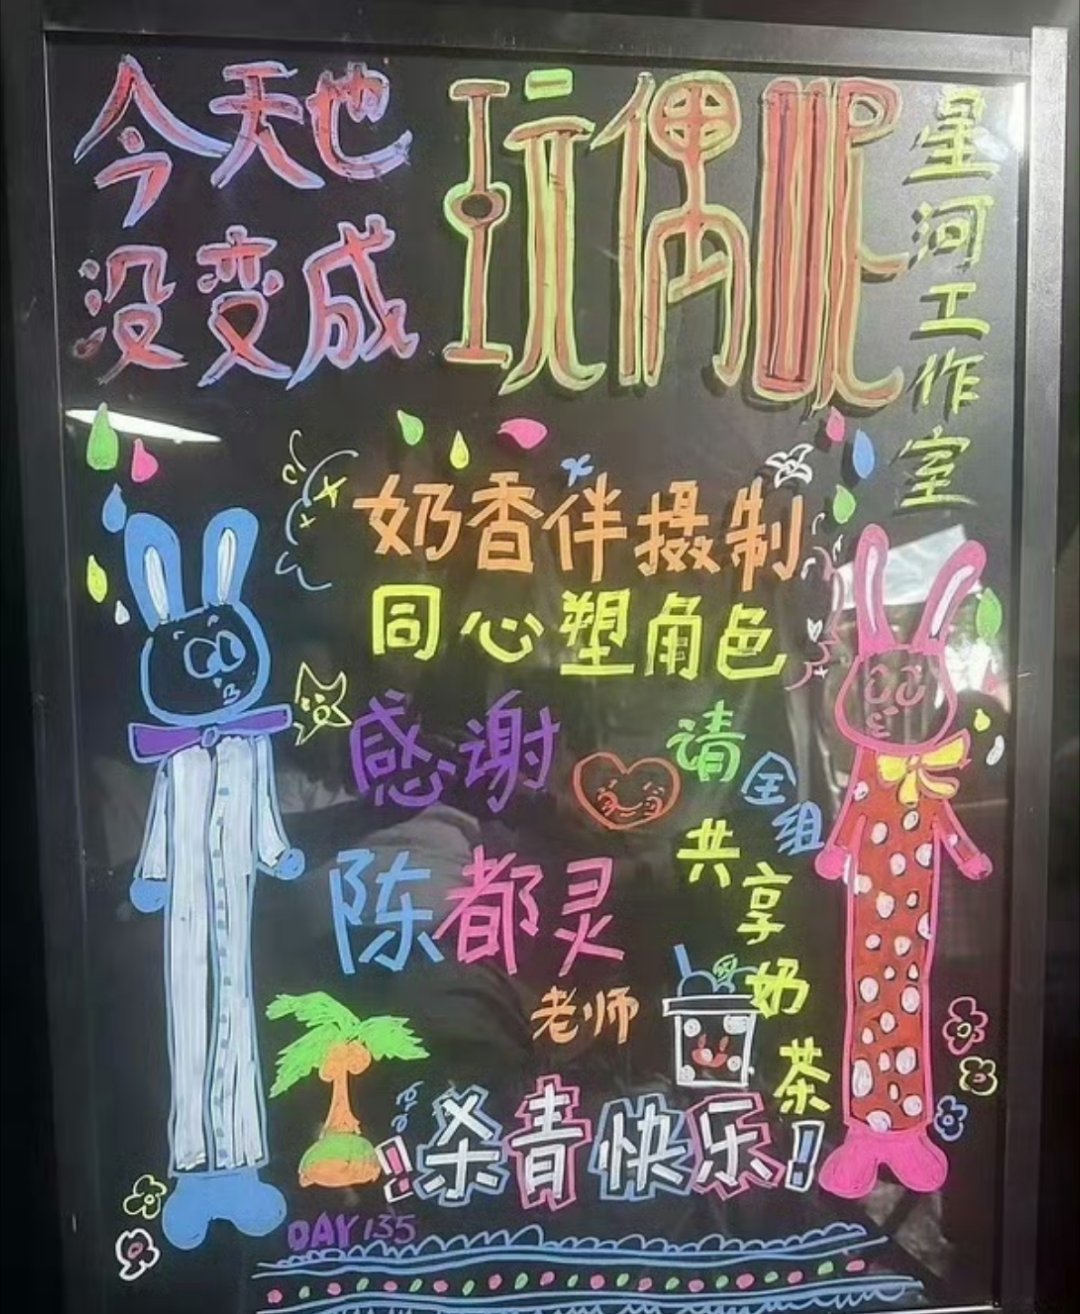 今天也
没变成
玩偶呢
星河工作室
奶香伴摄制
同心塑角色
感谢
陈都灵
老师
请全组
共享奶茶
!杀青快乐!
DAY 135